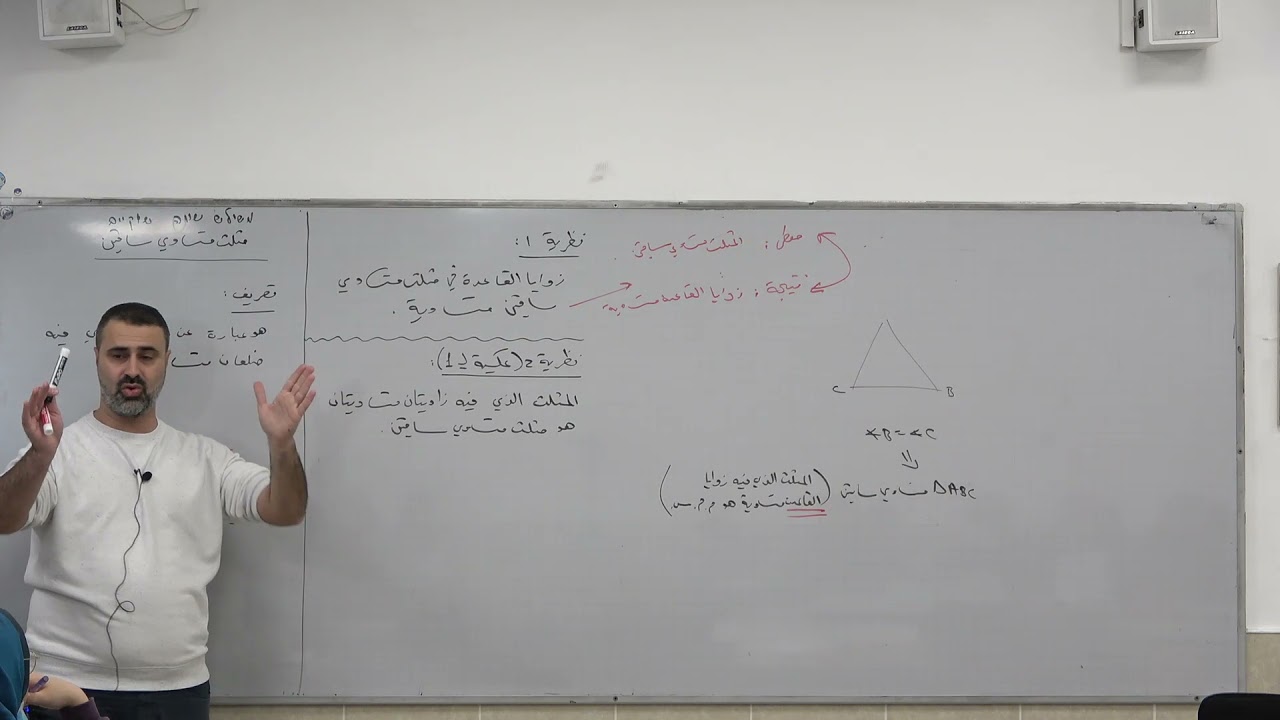 משולש שווה שוקיים
مثلث متساوي ساقين
تعريف :
هو عبارة عن
فيه
ضلعان
نظرية 1 :
زوايا القاعدة في مثلث متساوي
ساقين متساوية .
نظرية 2 (عكسية لـ 1) :
المثلث الذي فيه زاويتان متساويتان
هو مثلث متساوي ساقين .
معطى : المثلث متساوي ساقين .
نتيجة : زوايا القاعدة متساوية
C B
∢B = ∢C
⇓
△ABC متساوي ساقين (المثلث الذي فيه زوايا
القاعدة متساوية هو م.م.س.)